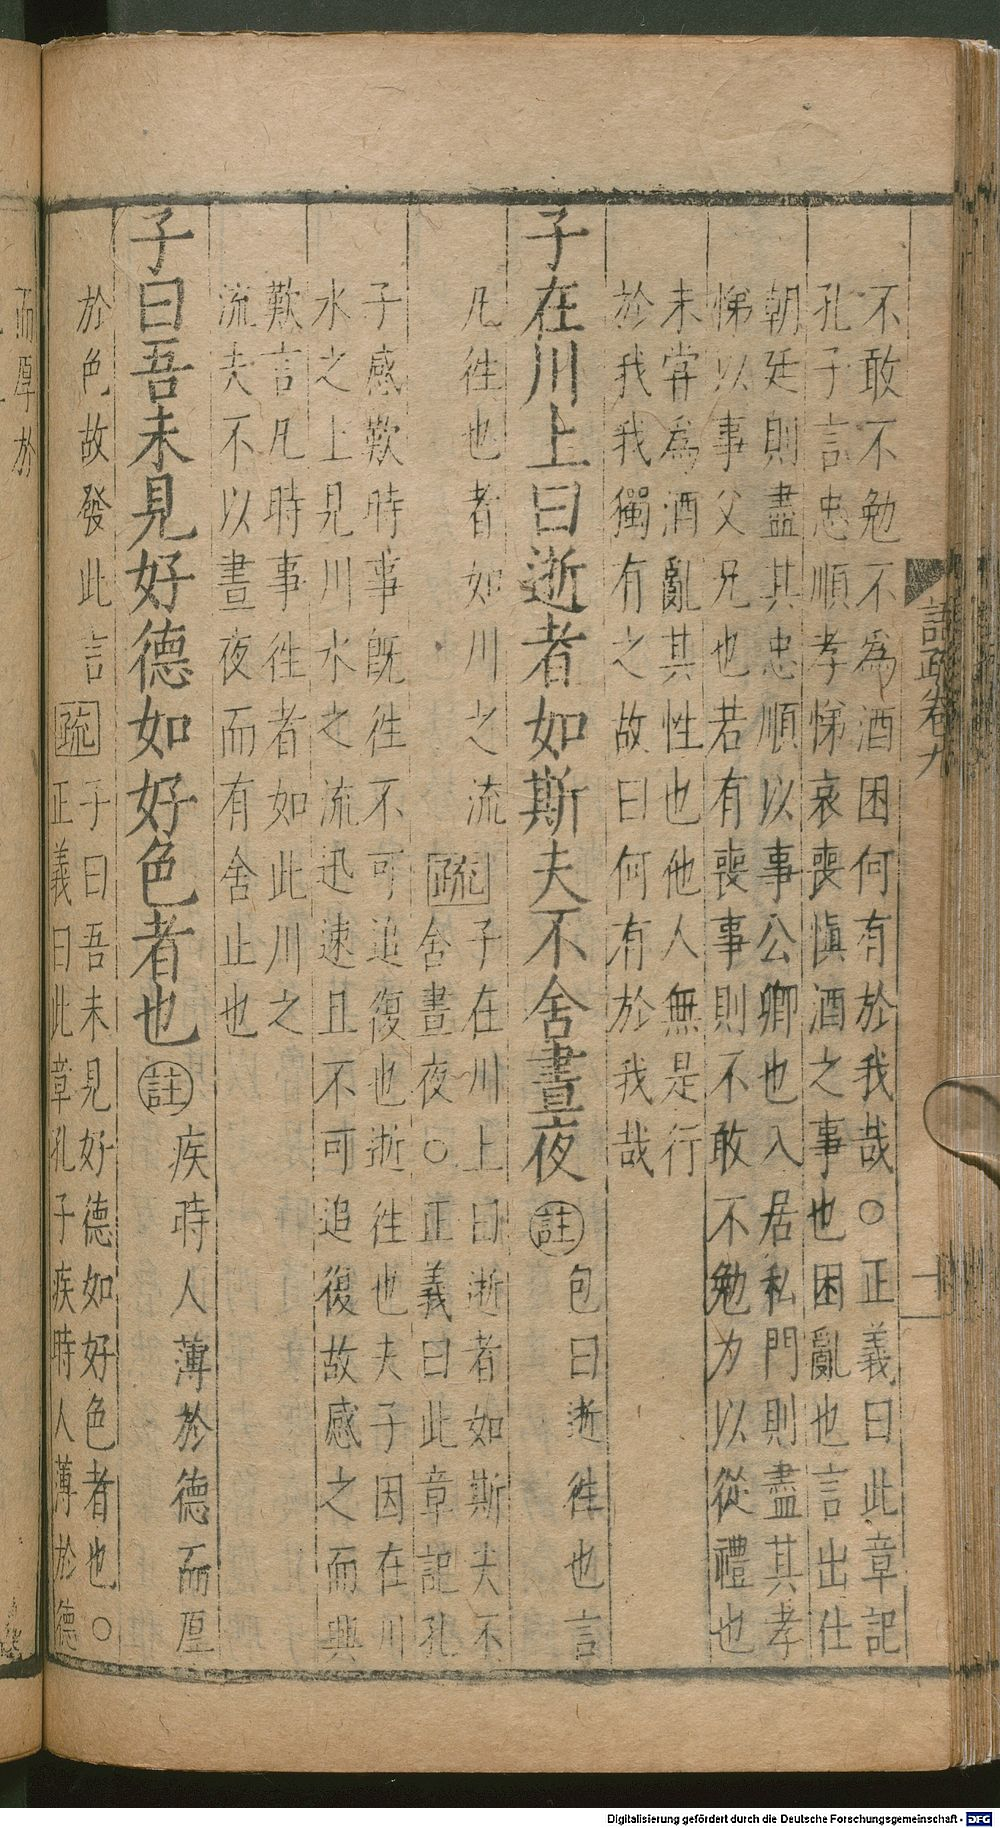 不敢不勉不為酒困何有於我哉○正義曰此章記
孔子言忠順孝悌哀喪慎酒之事也困亂也言出仕
朝廷則盡其忠順以事公卿也入居私門則盡其孝
悌以事父兄也若有喪事則不敢不勉力以從禮也
未嘗為酒亂其性也他人無是行
於我我獨有之故曰何有於我哉
子在川上曰逝者如斯夫不舍晝夜
註
包曰逝徃也言
凡徃也者如川之流
疏
子在川上曰逝者如斯夫不
舍晝夜○正義曰此章記孔
子感歎時事既徃不可追復也逝徃也夫子因在川
水之上見川水之流迅速且不可追復故感之而興
歎言凡時事徃者如此川之
流夫不以晝夜而有舍止也
子曰吾未見好德如好色者也
註
疾時人薄於德而厚
於色故發此言
疏
子曰吾未見好德如好色者也○
正義曰此章孔子疾時人薄於德
而厚於
語疏卷九
十
Digitalisierung gefördert durch die Deutsche Forschungsgemeinschaft - DFG